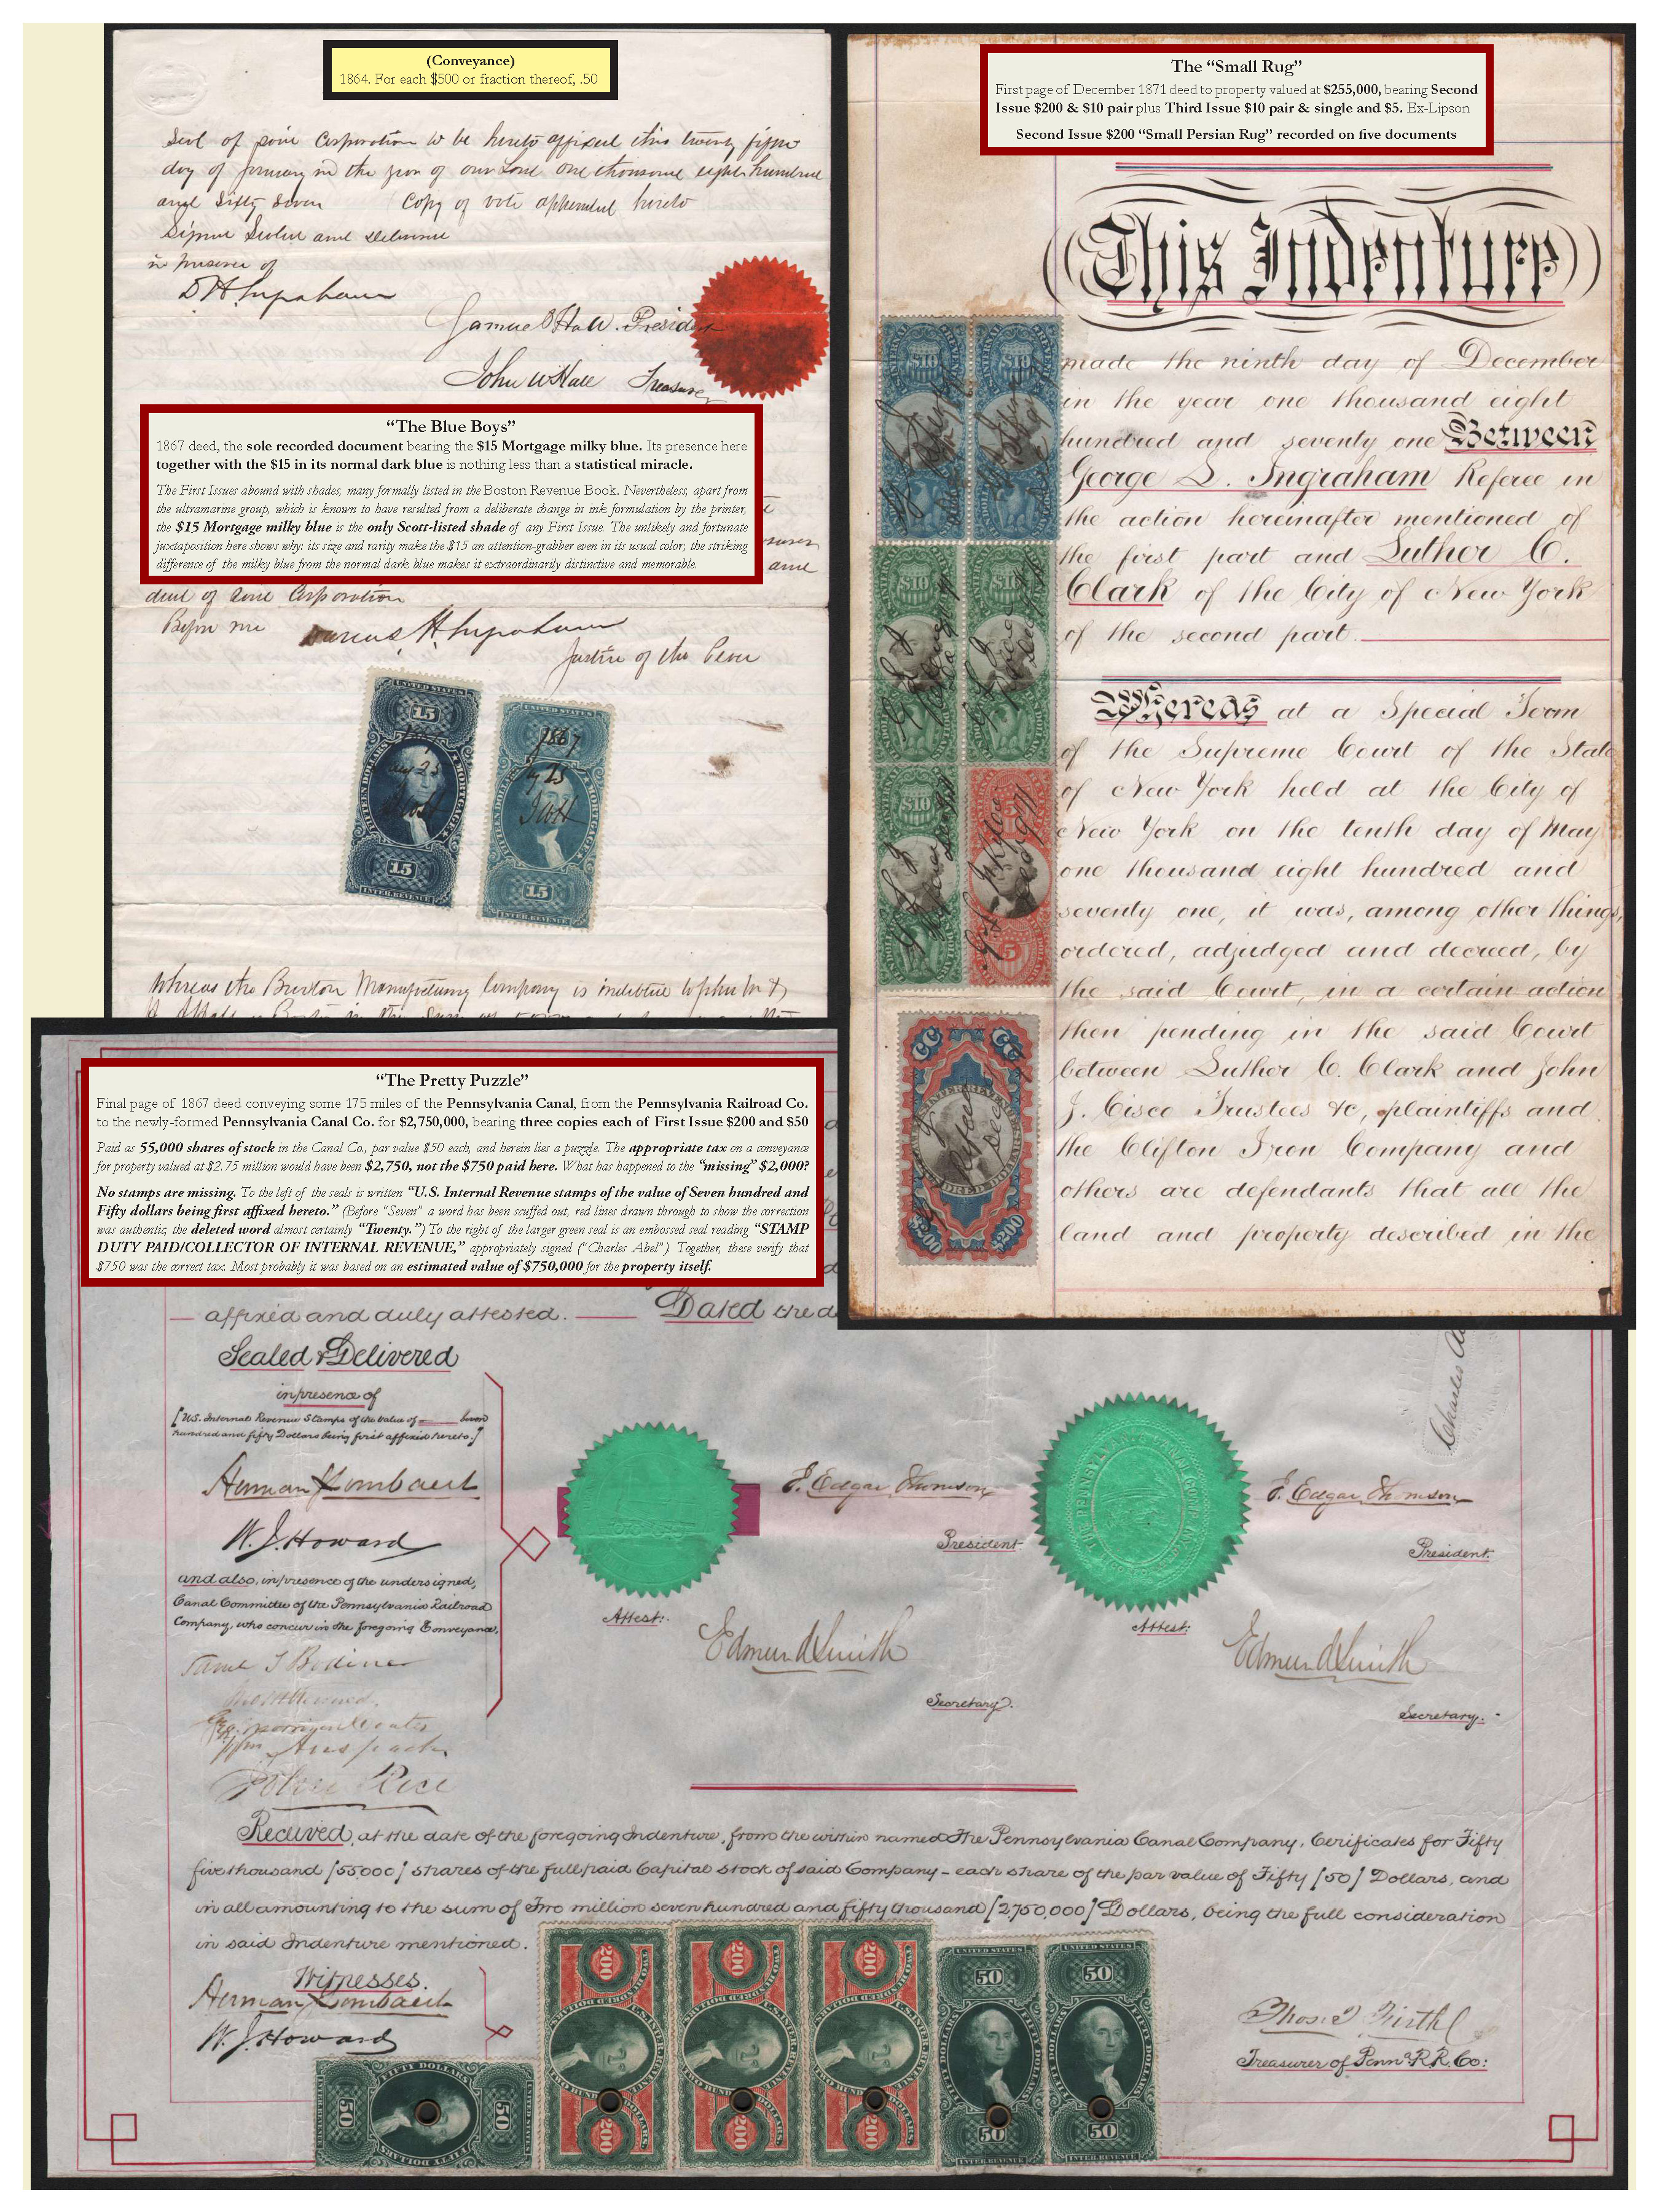 (Conveyance)
1864. For each $500 or fraction thereof, .50
Seal of said Corporation to be hereto affixed this twenty fifth
day of January in the year of our Lord one thousand eight hundred
and sixty seven Copy of vote appended hereto
Signed Sealed and delivered
in presence of
President
John W Hall Treasurer
“The Blue Boys”
1867 deed, the sole recorded document bearing the $15 Mortgage milky blue. Its presence here
together with the $15 in its normal dark blue is nothing less than a statistical miracle.
The First Issues abound with shades, many formally listed in the Boston Revenue Book. Nevertheless, apart from
the ultramarine group, which is known to have resulted from a deliberate change in ink formulation by the printer,
the $15 Mortgage milky blue is the only Scott-listed shade of any First Issue. The unlikely and fortunate
juxtaposition here shows why: its size and rarity make the $15 an attention-grabber even in its usual color; the striking
difference of the milky blue from the normal dark blue makes it extraordinarily distinctive and memorable.
dent of said Corporation
Before me
Justice of the Peace
UNITED STATES
15
FIFTEEN DOLLARS
MORTGAGE
15
INTER. REVENUE
UNITED STATES
1867
15
INTER. REVENUE
Whereas the Manufacturing Company is indebted to
The “Small Rug”
First page of December 1871 deed to property valued at $255,000, bearing Second
Issue $200 & $10 pair plus Third Issue $10 pair & single and $5. Ex-Lipson
Second Issue $200 “Small Persian Rug” recorded on five documents
This Indenture
made the ninth day of December
in the year one thousand eight
hundred and seventy one Between
George L. Ingraham Referee in
the action hereinafter mentioned of
the first part and Luther C.
Clark of the City of New York
of the second part.
Whereas at a Special Term
of the Supreme Court of the State
of New York held at the City of
New York on the tenth day of May
one thousand eight hundred and
seventy one, it was, among other things,
ordered, adjudged and decreed, by
the said Court, in a certain action
then pending in the said Court
between Luther C. Clark and John
J. Cisco Trustees &c, plaintiffs and
the Clifton Iron Company and
others are defendants that all the
land and property described in the
$10
$10
$10
$10
$10
5
CC CC
$200 $200
“The Pretty Puzzle”
Final page of 1867 deed conveying some 175 miles of the Pennsylvania Canal, from the Pennsylvania Railroad Co.
to the newly-formed Pennsylvania Canal Co. for $2,750,000, bearing three copies each of First Issue $200 and $50
Paid as 55,000 shares of stock in the Canal Co., par value $50 each, and herein lies a puzzle. The appropriate tax on a conveyance
for property valued at $2.75 million would have been $2,750, not the $750 paid here. What has happened to the “missing” $2,000?
No stamps are missing. To the left of the seals is written “U.S. Internal Revenue stamps of the value of Seven hundred and
Fifty dollars being first affixed hereto.” (Before “Seven” a word has been scuffed out, red lines drawn through to show the correction
was authentic, the deleted word almost certainly “Twenty.”) To the right of the larger green seal is an embossed seal reading “STAMP
DUTY PAID/COLLECTOR OF INTERNAL REVENUE,” appropriately signed (“Charles Abel”). Together, these verify that
$750 was the correct tax. Most probably it was based on an estimated value of $750,000 for the property itself.
affixed and duly attested. Dated the d
Sealed & Delivered
in presence of
[U.S. Internal Revenue Stamps of the value of Seven
hundred and fifty Dollars being first affixed hereto.]
Herman Lombaert
W. J. Howard
and also, in presence of the undersigned,
Canal Committee of the Pennsylvania Railroad
Company, who concur in the foregoing Conveyance.
J. Edgar Thomson
President
Attest:
Edmund Smith
Secretary.
J. Edgar Thomson
President.
Attest:
Edmund Smith
Secretary.
Charles
Received, at the date of the foregoing Indenture, from the within named The Pennsylvania Canal Company, Certificates for Fifty
five thousand [55,000] shares of the full paid Capital stock of said Company - each share of the par value of Fifty [50] Dollars, and
in all amounting to the sum of Two million seven hundred and fifty thousand [2,750,000] Dollars, being the full consideration
in said Indenture mentioned.
Witnesses.
Herman Lombaert
W. J. Howard
Thos. T. Firth
Treasurer of Penna. R.R. Co:
FIFTY DOLLARS
50
50
200
200
200
200
200
200
UNITED STATES
50
50
INTER. REVENUE
UNITED STATES
50
50
INTER. REVENUE